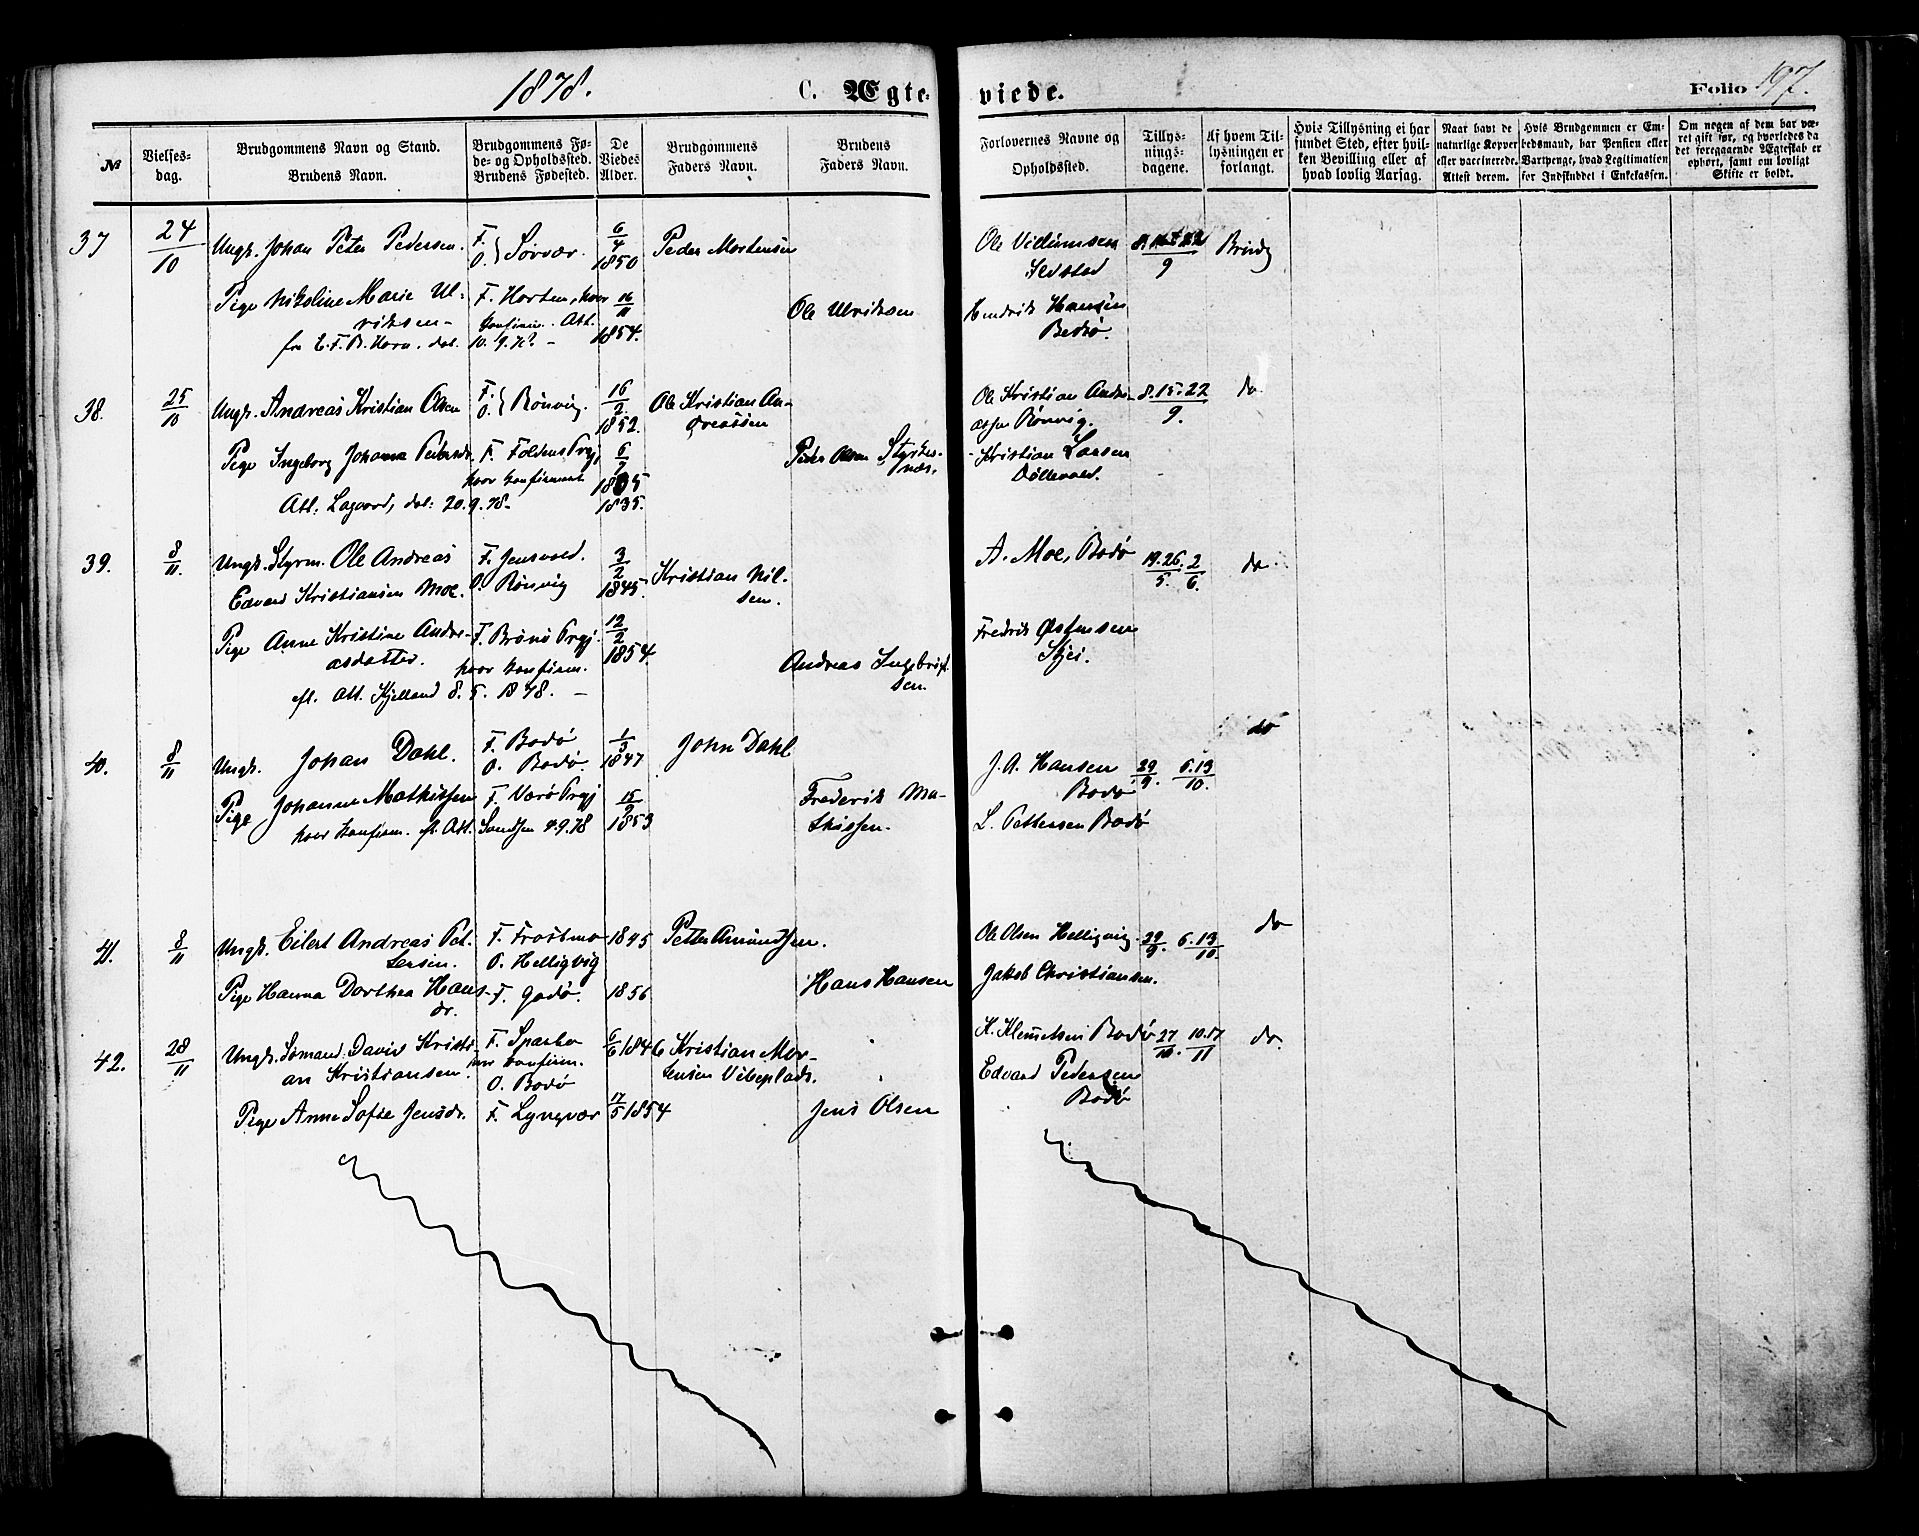 1878. C. Ægte-
viede. Folio 197.
№
Vielses-
dag.
Brudgommens Navn og Stand.
Brudens Navn.
Brudgommens Fø-
de- og Opholdssted.
Brudens Fødested.
De
Viedes
Alder.
Brudgommens
Faders Navn.
Brudens
Faders Navn.
Forlovernes Navne og
Opholdssted.
Tillys-
nings-
dagene.
Af hvem Til-
lysningen er
forlangt.
Hvis Tillysning ei har
fundet Sted, efter hvil-
ken Bevilling eller af
hvad lovlig Aarsag.
Naar havt de
naturlige Kopper
eller vaccinerede.
Attest derom.
Hvis Brudgommen er Em-
bedsmand, har Pension eller
Vartpenge, hvad Legitimation
for Indskuddet i Enkekassen.
Om nogen af dem har væ-
ret gift før, og hvorledes da
det foregaaende Ægteskab er
ophørt, samt om lovligt
Skifte er holdt.
37 24/10 Ungk. Johan Peter Pedersen. F. O. } Sørvær. 6/4 1850 Peder Mortensen
Ole Villumsen 22/9 Brudg
Pige Nikoline Marie Ul-
riksen F. Horten, hvor
konfirm. Att.
10.9.78 16/11 1854. Ole Ulriksen
Hendrik Hansen
Bodø.
38. 25/10 Ungk. Andreas Kristian Olsen F. O. } Rønvig. 16/2 1852. Ole Kristian An-
dreassen
Ole Kristian Andre-
assen Rønvig. 8.15.22/9. do
Pige Ingeborg Johanna Pedersdr. F. Foldens Prgj
hvor konfirmeret 6/7
1835. Peder Olsen Styrkes-
næs.
Att: Lagaard, dat: 20.9.78
Kristian Larsen
39. 8/11. Ungk. Styrm. Ole Andreas
Edvard Kristiansen Moe. F. Jensvold.
O. Rønvig 3/2 1845. Kristian Nil-
sen.
A. Moe, Bodø 19.26./5. 2/6. do
Pige Anne Kristine Andre-
asdatter. F. Brønø Prgj.
hvor konfirm. 12/2 1854. Andreas Ingebrigt-
sen.
efl. Att. Kjelland 8.5.1878.
Fredrik Østensen
Stjei.
40. 8/11 Ungk. Johan Dahl. F. Bodø
O. Bodø. 1/3 1847 John Dahl
J. A. Hansen
Bodø 29/9. 6.13/10. do
Pige Johanne Mathissen F. Værø Prgj 15/9 1853 Frederik Ma-
thissen.
hvor konfirm. efl. Att. Sandsen 4.9.78
L. Pettersen Bodø
41. 8/11 Ungk. Eilert Andreas Pet-
tersen. F. Frostmo
O. Helligvig 1845 Petter Amundsen.
Ole Olsen Helligvig. 29/9. 6.13/10. do
Pige Hanna Dorthea Hans-
dr. F. Godø. 1856 Hans Hansen
Jakob Christiansen.
42. 28/11 Ungk. Sømand. David Kristi-
an Kristiansen. F. Sparbo
hvor konfirm.
O. Bodø 6/6 1846 Kristian Mor-
tensen Vibeplads.
K. Klemetsen Bodø 27/10. 10.17/11 do.
Edvard Pedersen
Bodø
Pige Anne Sofie Jensdr. F. Lyngvær 17/5 1854 Jens Olsen